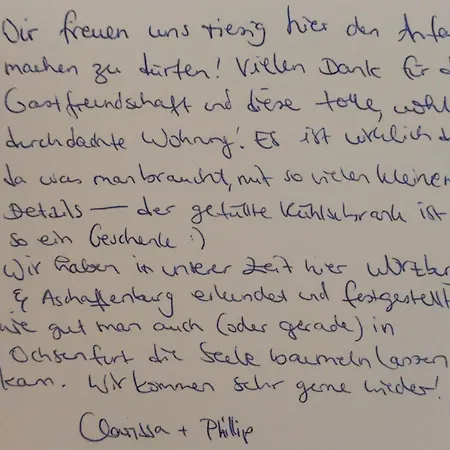 Wir freuen uns riesig hier den Anfa
machen zu dürfen! Vielen Dank für d
Gastfreundschaft und diese tolle, wohl
durchdachte Wohnung! Es ist wirklich
da was man braucht, mit so vielen kleinen
Details — der gefüllte Kühlschrank ist
so ein Geschenk :)
Wir haben in unserer Zeit hier Würzbur
& Aschaffenburg erkundet und festgestellt
wie gut man auch (oder gerade) in
Ochsenfurt die Seele baumeln lassen
kann. Wir kommen sehr gerne wieder!
Clarissa + Phillip